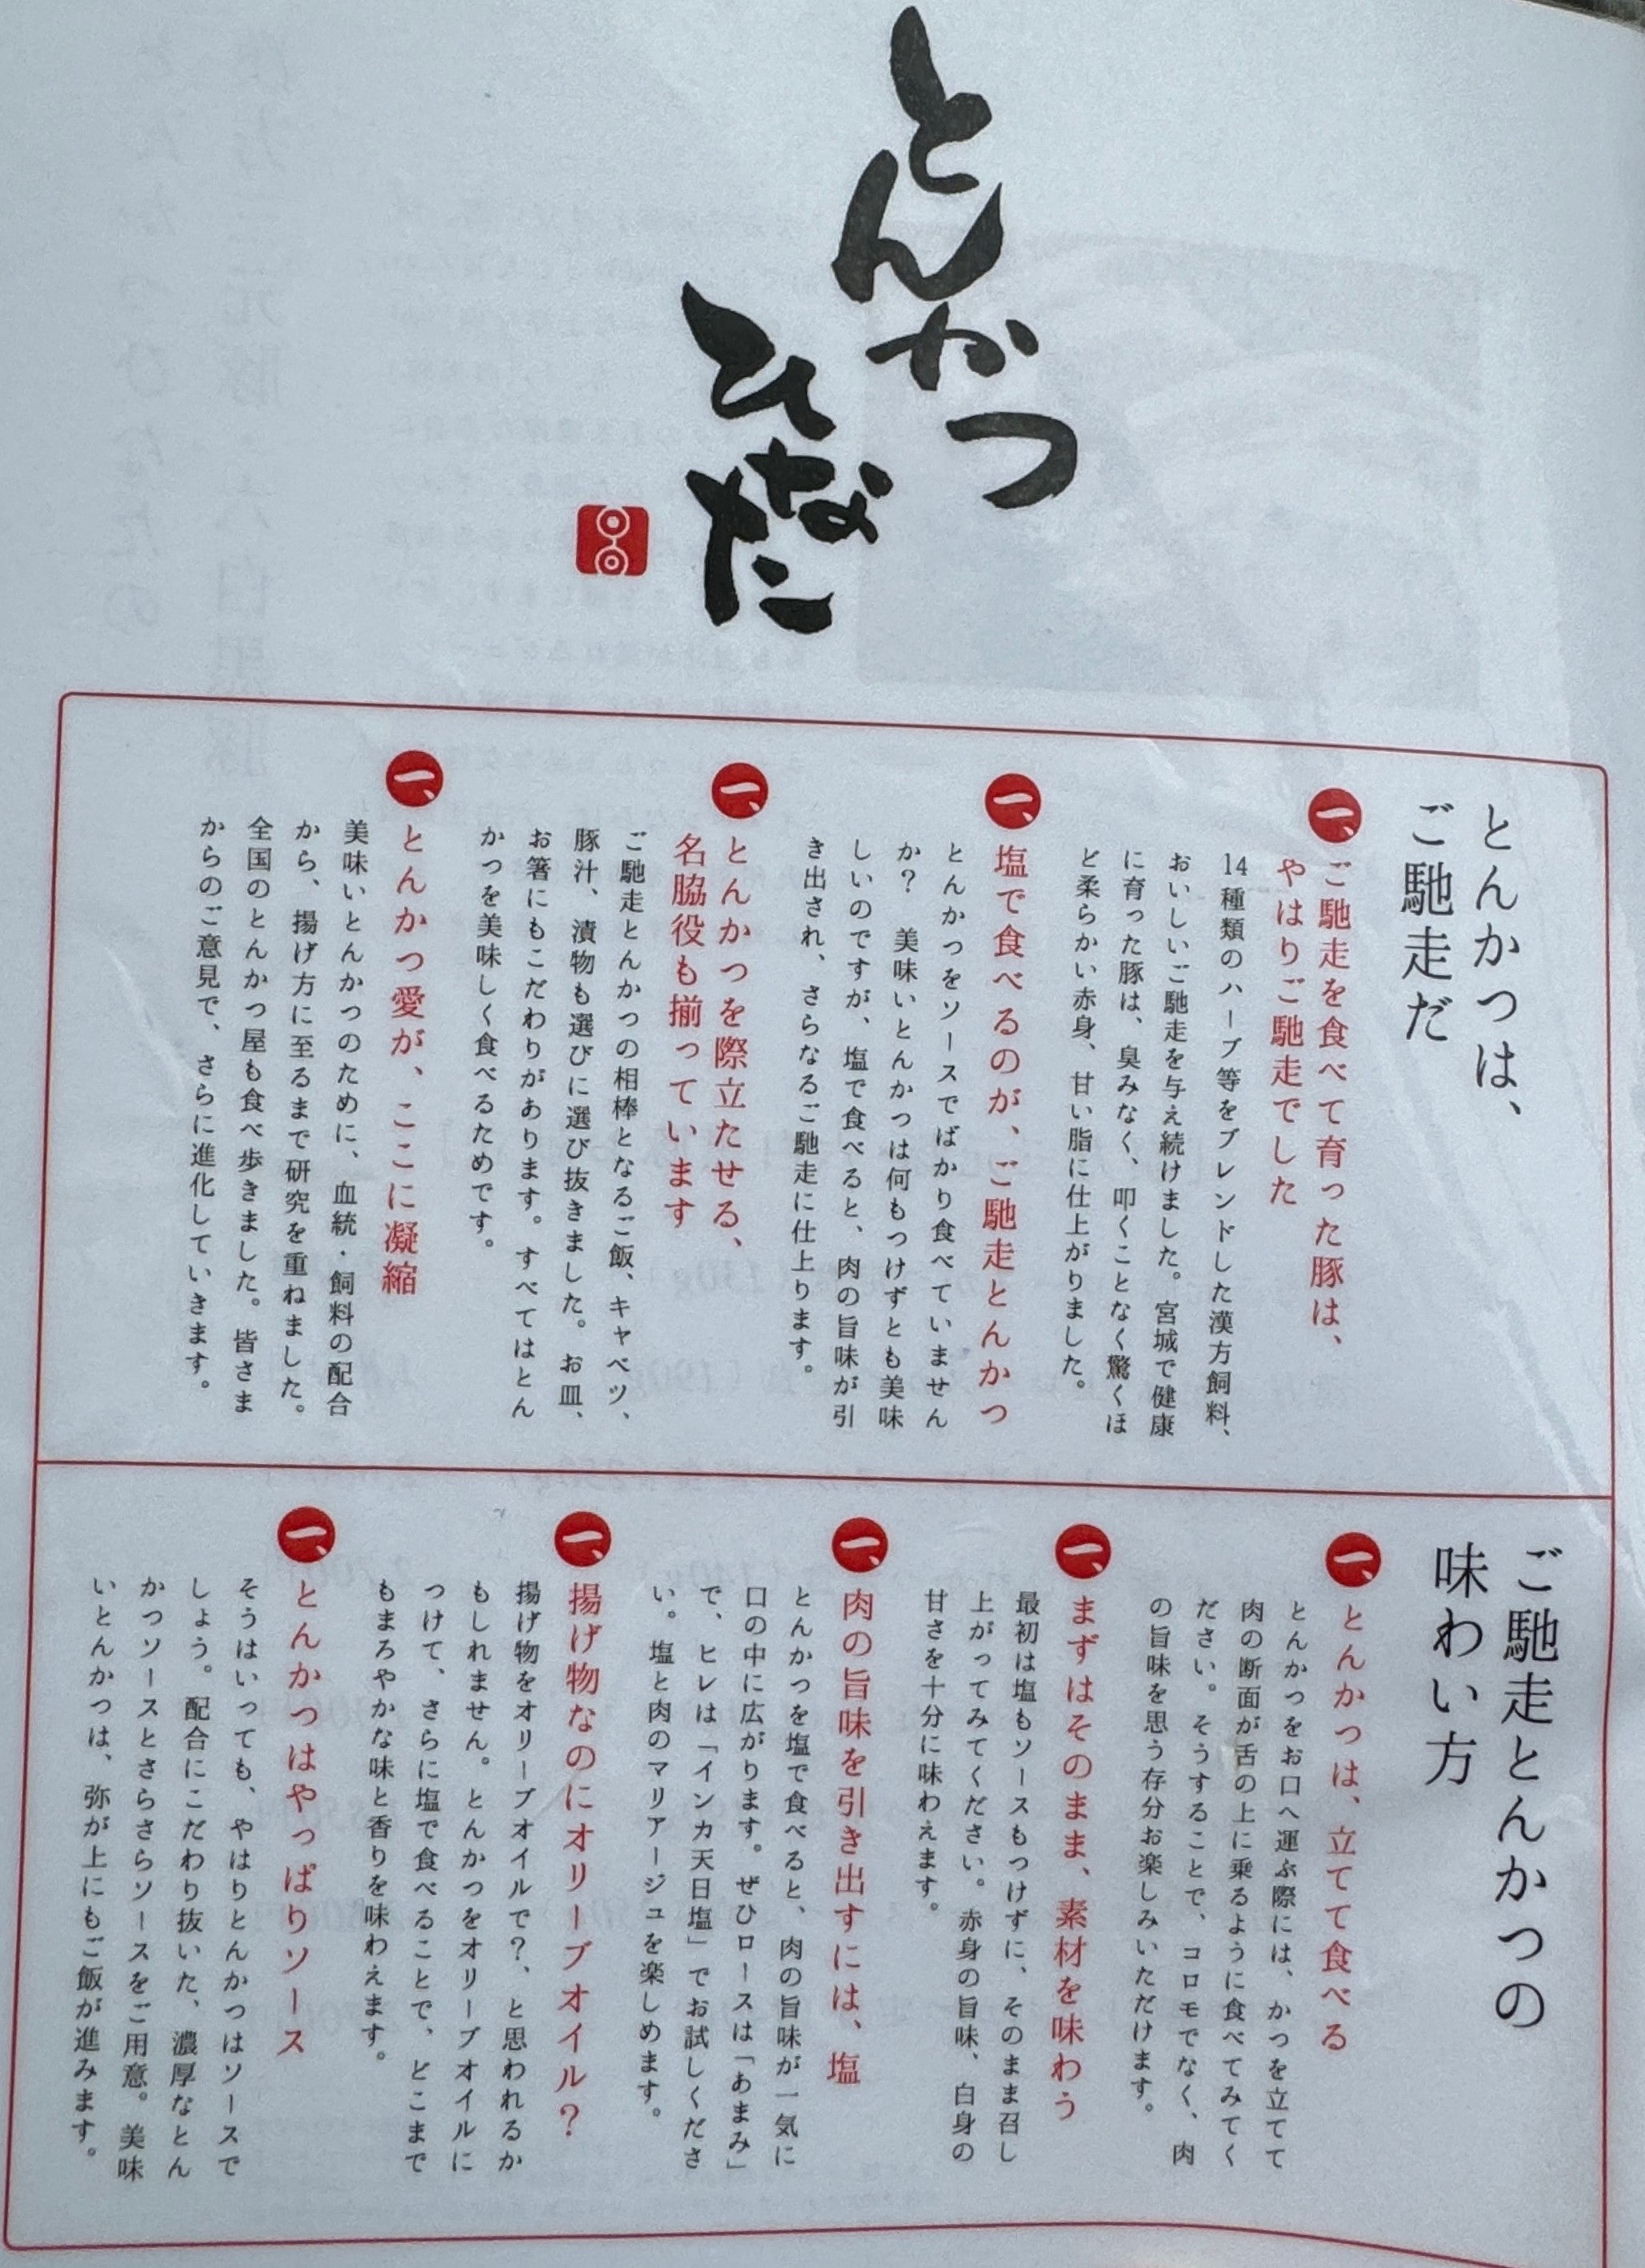 とんかつ
ひなた
とんかつは、
ご馳走だ
一、
ご馳走を食べて育った豚は、
やはりご馳走でした
14種類のハーブ等をブレンドした漢方飼料、
おいしいご馳走を与え続けました。宮城で健康
に育った豚は、臭みなく、叩くことなく驚くほ
ど柔らかい赤身、甘い脂に仕上がりました。
一、
塩で食べるのが、ご馳走とんかつ
とんかつをソースでばかり食べていません
か？　美味いとんかつは何もつけずとも美味
しいのですが、塩で食べると、肉の旨味が引
き出され、さらなるご馳走に仕上ります。
一、
とんかつを際立たせる、
名脇役も揃っています
ご馳走とんかつの相棒となるご飯、キャベツ、
豚汁、漬物も選びに選び抜きました。お皿、
お箸にもこだわりがあります。すべてはとん
かつを美味しく食べるためです。
一、
とんかつ愛が、ここに凝縮
美味いとんかつのために、血統・飼料の配合
から、揚げ方に至るまで研究を重ねました。
全国のとんかつ屋も食べ歩きました。皆さま
からのご意見で、さらに進化していきます。
ご馳走とんかつの
味わい方
一、
とんかつは、立てて食べる
とんかつをお口へ運ぶ際には、かつを立てて
肉の断面が舌の上に乗るように食べてみてく
ださい。そうすることで、コロモでなく、肉
の旨味を思う存分お楽しみいただけます。
一、
まずはそのまま、素材を味わう
最初は塩もソースもつけずに、そのまま召し
上がってみてください。赤身の旨味、白身の
甘さを十分に味わえます。
一、
肉の旨味を引き出すには、塩
とんかつを塩で食べると、肉の旨味が一気に
口の中に広がります。ぜひロースは「あまみ」
で、ヒレは「インカ天日塩」でお試しくださ
い。塩と肉のマリアージュを楽しめます。
一、
揚げ物なのにオリーブオイル？
揚げ物をオリーブオイルで？、と思われるか
もしれません。とんかつをオリーブオイルに
つけて、さらに塩で食べることで、どこまで
もまろやかな味と香りを味わえます。
一、
とんかつはやっぱりソース
そうはいっても、やはりとんかつはソースで
しょう。配合にこだわり抜いた、濃厚なとん
かつソースとさらさらソースをご用意。美味
いとんかつは、弥が上にもご飯が進みます。